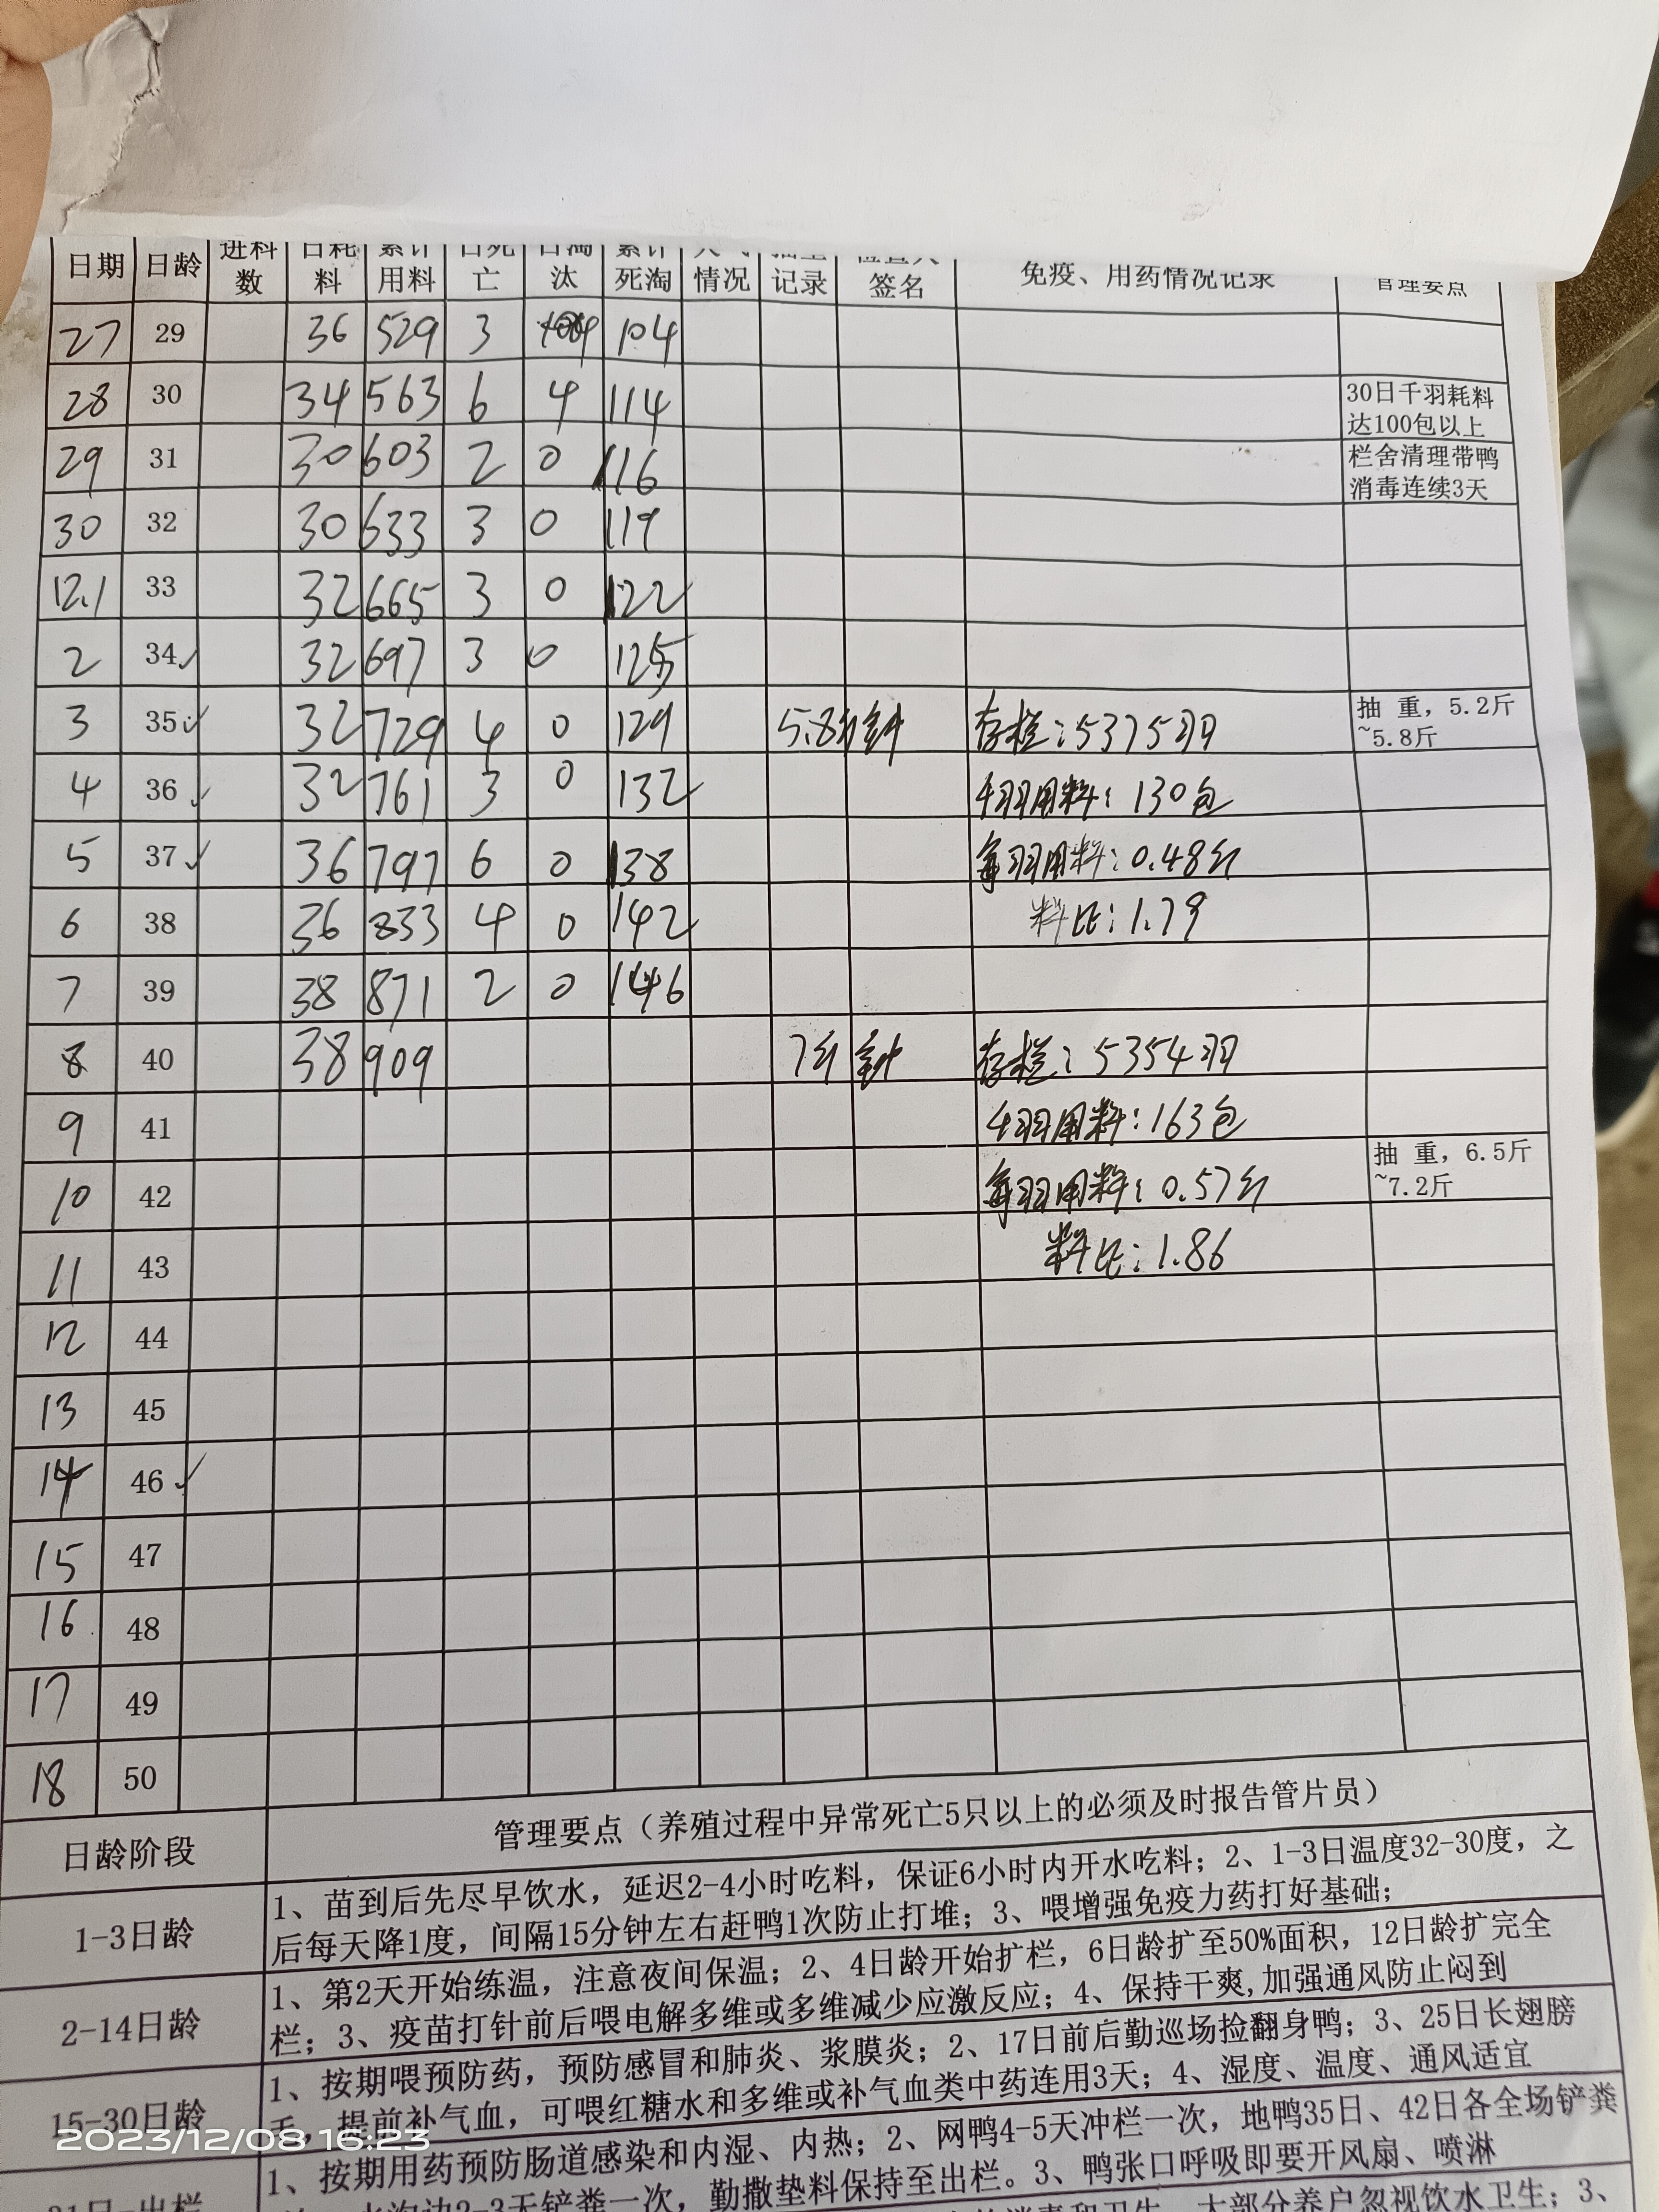 日期 日龄 进料数 日耗料 累计用料 日死亡 日淘汰 累计死淘 情况 记录 签名 免疫、用药情况记录 管理要点
27 29 36 529 3 104
28 30 34 563 6 4 114 30日千羽耗料达100包以上
29 31 30 603 2 0 116 栏舍清理带鸭消毒连续3天
30 32 30 633 3 0 119
12.1 33 32 665 3 0 122
2 34✓ 32 697 3 0 125
3 35✓ 32 729 4 0 129 5.8斤 存栏:5375羽 抽 重，5.2斤~5.8斤
4 36✓ 32 761 3 0 132 千羽用料:130包
5 37✓ 36 797 6 0 138 每羽用料:0.48斤
6 38 36 833 4 0 142 料比:1.79
7 39 38 871 2 0 146
8 40 38 909 7斤 存栏:5354羽
9 41 千羽用料:163包
10 42 每羽用料:0.57斤 抽 重，6.5斤~7.2斤
11 43 料比:1.86
12 44
13 45
14 46✓
15 47
16 48
17 49
18 50
日龄阶段 管理要点（养殖过程中异常死亡5只以上的必须及时报告管片员）
1-3日龄 1、苗到后先尽早饮水，延迟2-4小时吃料，保证6小时内开水吃料；2、1-3日温度32-30度，之
后每天降1度，间隔15分钟左右赶鸭1次防止打堆；3、喂增强免疫力药打好基础；
2-14日龄 1、第2天开始练温，注意夜间保温；2、4日龄开始扩栏，6日龄扩至50%面积，12日龄扩完全
栏；3、疫苗打针前后喂电解多维或多维减少应激反应；4、保持干爽,加强通风防止闷到
15-30日龄 1、按期喂预防药，预防感冒和肺炎、浆膜炎；2、17日前后勤巡场捡翻身鸭；3、25日长翅膀
毛，提前补气血，可喂红糖水和多维或补气血类中药连用3天；4、湿度、温度、通风适宜
31日-出栏 1、按期用药预防肠道感染和内湿、内热；2、网鸭4-5天冲栏一次，地鸭35日、42日各全场铲粪
水沟边2-3天铲粪一次，勤撒垫料保持至出栏。3、鸭张口呼吸即要开风扇、喷淋
消毒和卫生，大部分养户忽视饮水卫生；3、
2023/12/08 16:23